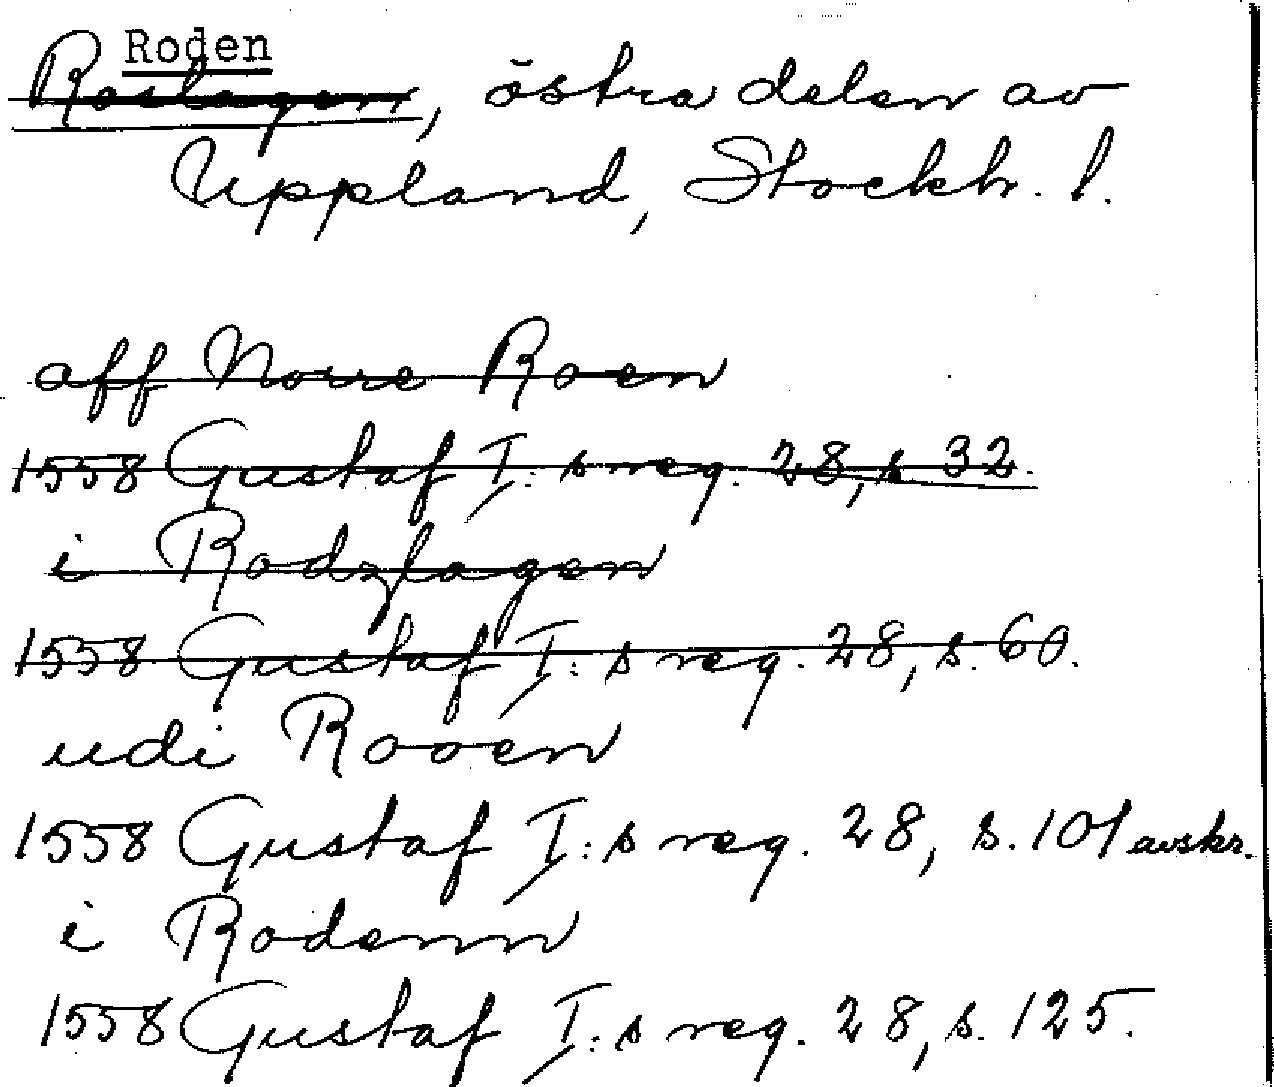 Roden
Roslagen, östra delen av
Uppland, Stockh. l.
aff Norre Roen
1558 Gustaf I:s reg. 28, s 32.
i Rodzlagen
1558 Gustaf I:s reg. 28, s. 60.
udi Rooen
1558 Gustaf I:s reg. 28, s. 101 avskr.
i Rodenn
1558 Gustaf I:s reg. 28, s. 125.